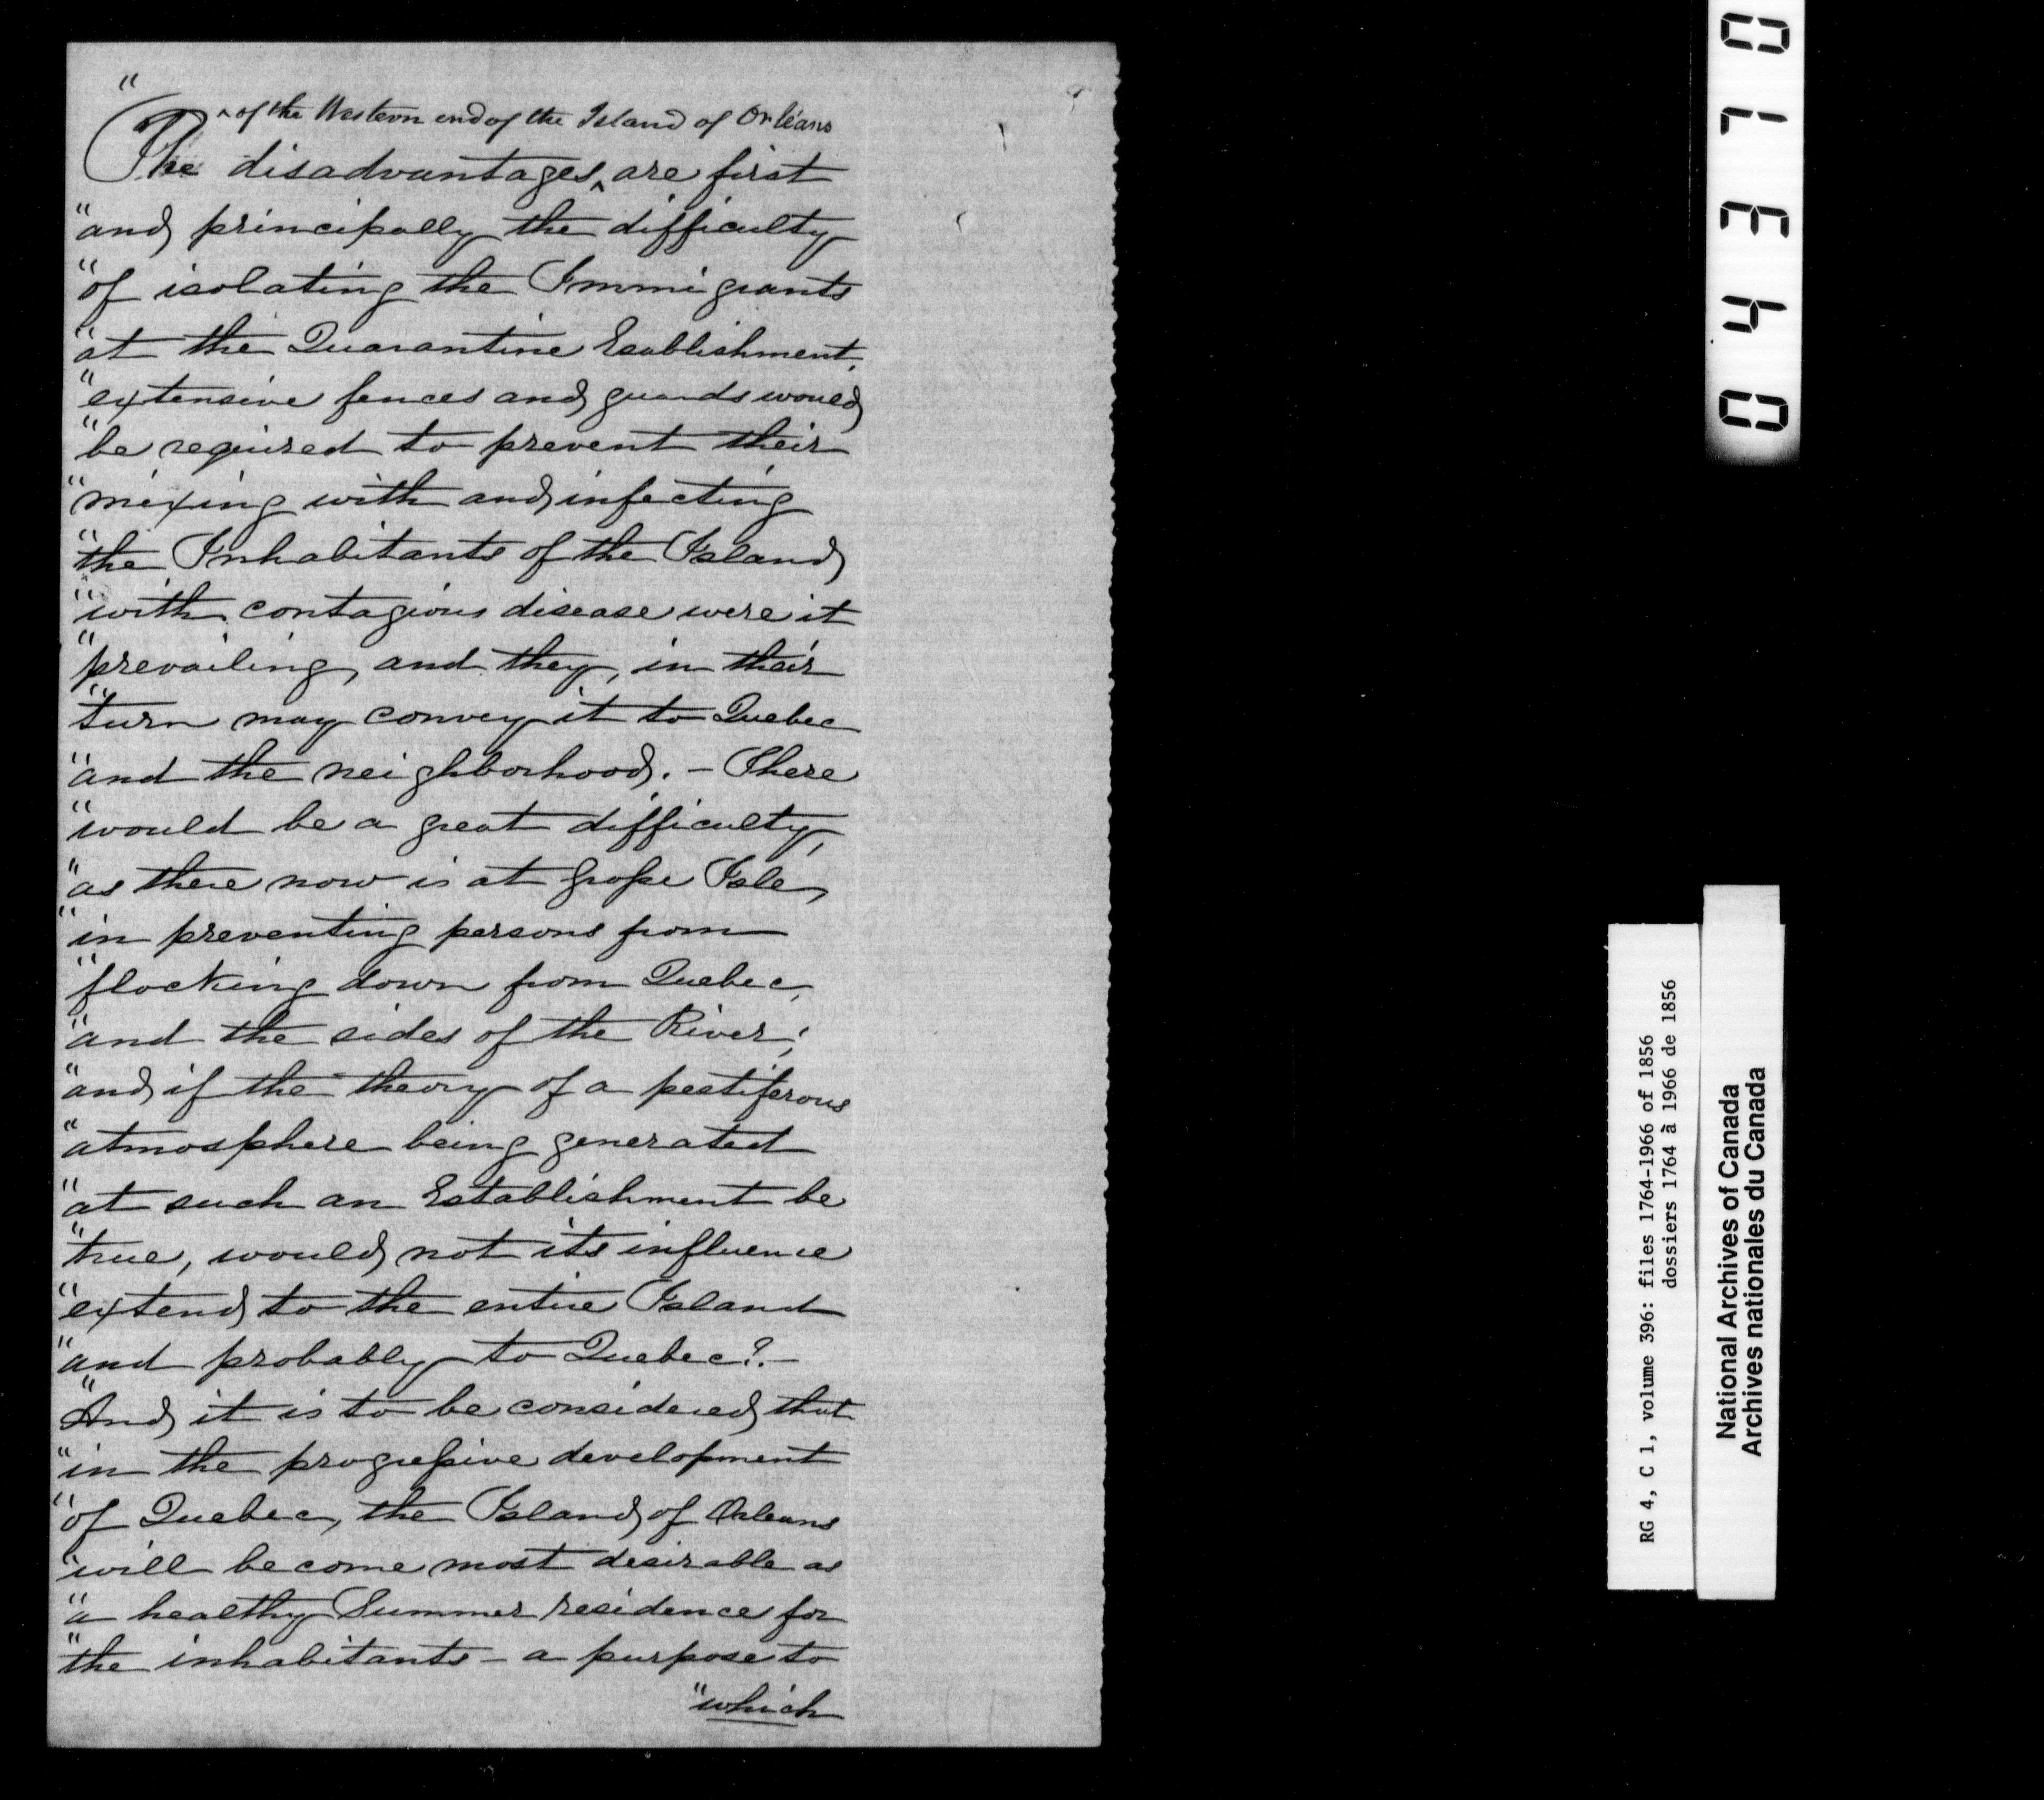 "
^ of the Western end of the Island of Orléans
The disadvantages ^ are first
"and principally the difficulty
"of isolating the Immigrants
"at the Quarantine Esablishment.
"extensive fences and guards would
"be required to prevent their
"mixing with and infecting
"the Inhabitants of the Island
"with contagious disease were it
"prevailing, and they, in their
"turn may convey it to Quebec
"and the neighborhood. - There
"would be a great difficulty,
"as there now is at Grosse Isle,
"in preventing persons from
"flocking down from Quebec,
"and the sides of the River;
"and if the theory of a pestiferous
"atmosphere being generated
"at such an Establishment be
"true, would not its influence
"extend to the entire Island
"and probably to Quebec?. -
"And it is to be considered that
"in the progressive development
"of Quebec, the Island of Orleans
"will become most desirable as
"a healthy Summer residence for
"the inhabitants - a purpose to
"which
04370
RG 4, C 1, volume 396: files 1764-1966 of 1856
dossiers 1764 à 1966 de 1856
National Archives of Canada
Archives nationales du Canada